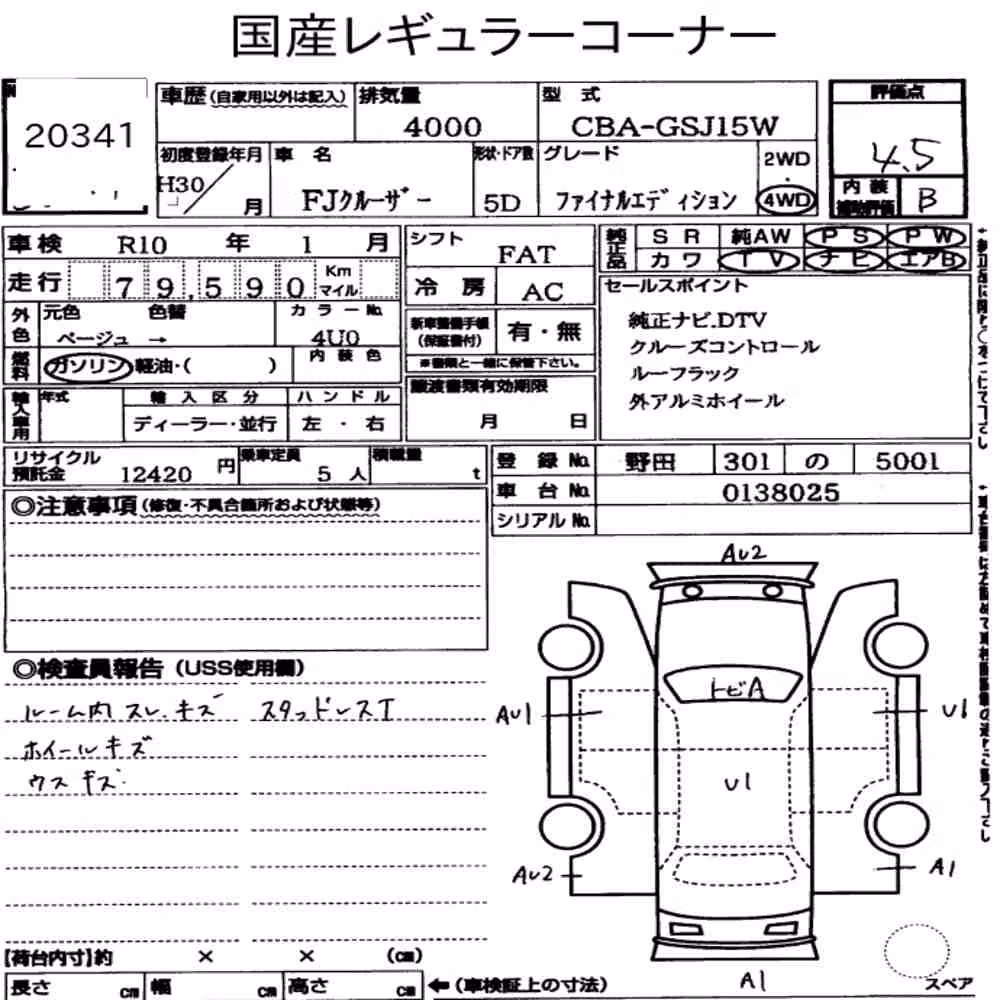 国産レギュラーコーナー
20341
車歴(自家用以外は記入)
排気量
4000
型 式
CBA-GSJ15W
評価点
4.5
初度登録年月
H30
月
車 名
FJクルーザー
形状・ドア数
5D
グレード
ファイナルエディション
2WD
・
4WD
内 装
補助評価
B
車 検 R10 年 1 月
走行 79,590 Km マイル
外色
元色 色替 カラーNo.
ベージュ → 4U0
燃料
ガソリン・軽油・( )
内 装 色
輸入車用
年式
輸 入 区 分
ディーラー・並行
ハ ン ド ル
左 ・ 右
シフト
FAT
冷 房
AC
新車整備手帳
(保証書付)
有・無
※書類と一緒に保管下さい。
譲渡書類有効期限
月 日
純正品
S R 純AW P S P W
カ ワ T V ナ ビ エアB
セールスポイント
純正ナビ.DTV
クルーズコントロール
ルーフラック
外アルミホイール
リサイクル
預託金 12420 円
乗車定員
5 人
積載量
t
登 録 No. 野田 301 の 5001
車 台 No. 0138025
シリアル No.
◎注意事項(修復・不具合箇所および状態等)
◎検査員報告(USS使用欄)
ルーム内 スレ.キズ スタッドレスT
ホイールキズ
ウスキズ
AU2
トビA
AU1
U1
U1
AU2
A1
A1
スペア
【荷台内寸】約 × × (cm)
長さ cm 幅 cm 高さ cm ←(車検証上の寸法)